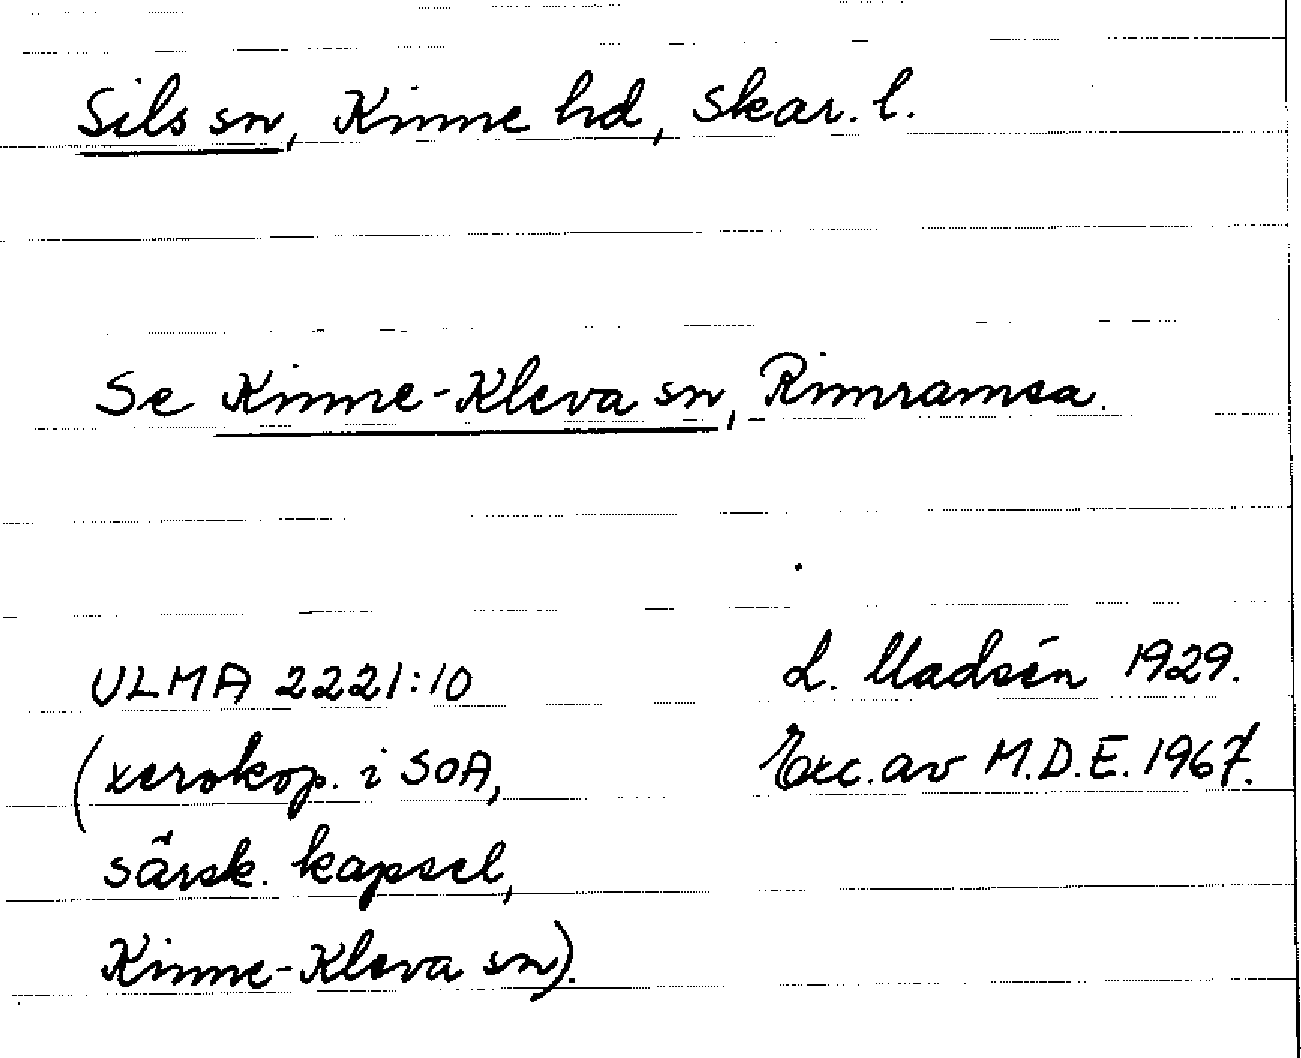 Sils sn, Kinne hd, Skar. l.
Se Kinne-Kleva sn, Rimramsa.
ULMA 2221:10
L. Madsén 1929.
(xerokop. i SOA,
Exc. av M.D.E. 1967.
särsk. kapsel,
Kinne-Kleva sn).